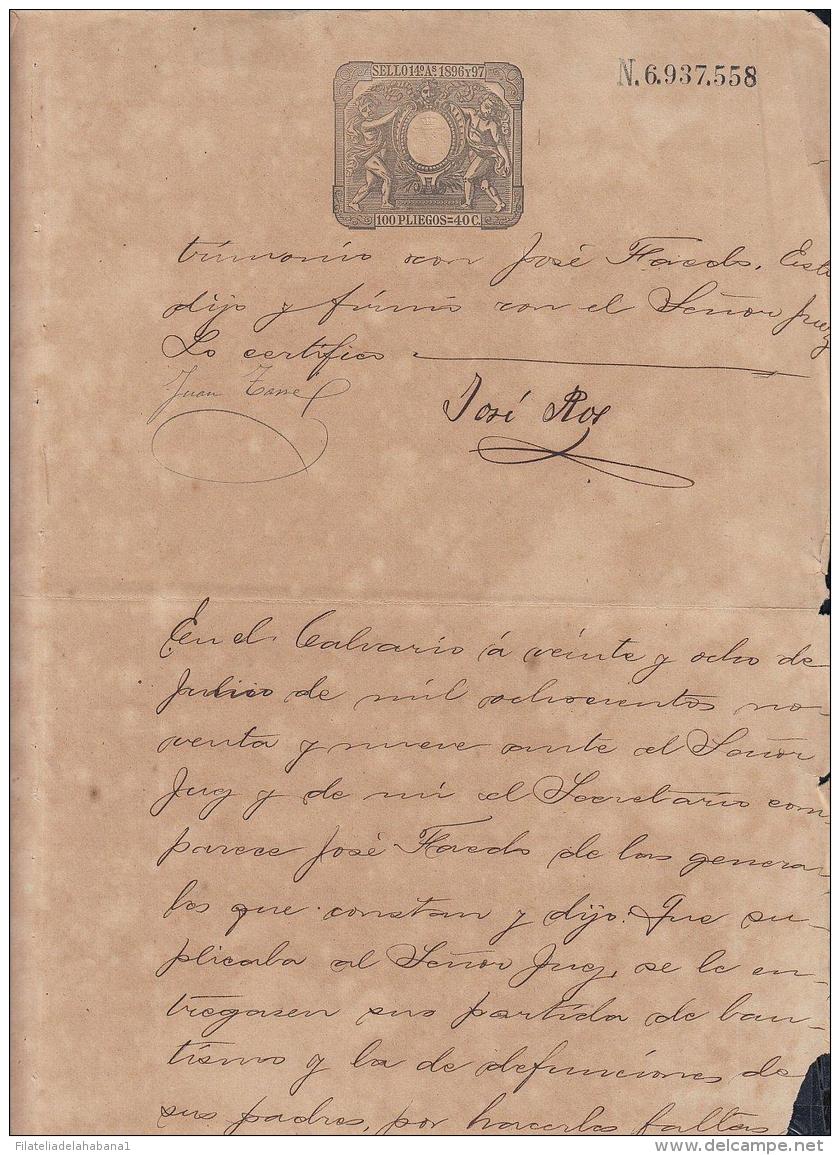 SELLO 14º Aˢ 1896 Y 97
N. 6.937.558
100 PLIEGOS = 40 C.
trimonio con José Faedo. Esto
dijo y firmó con el Señor Juez
Lo certifico.
Juan
José Ros
En el Calvario á veinte y ocho de
Julio de mil ochocientos no-
venta y nueve ante el Señor
Juez y de mi el Secretario com-
parece José Faedo de las genera-
les que constan y dijo: Que su-
plicaba al Señor Juez, se le en-
tregasen sus partida de bau-
tismo y la de defunciones de
sus padres, por hacerles faltas
Filateliadelahabana1
delcampe.net